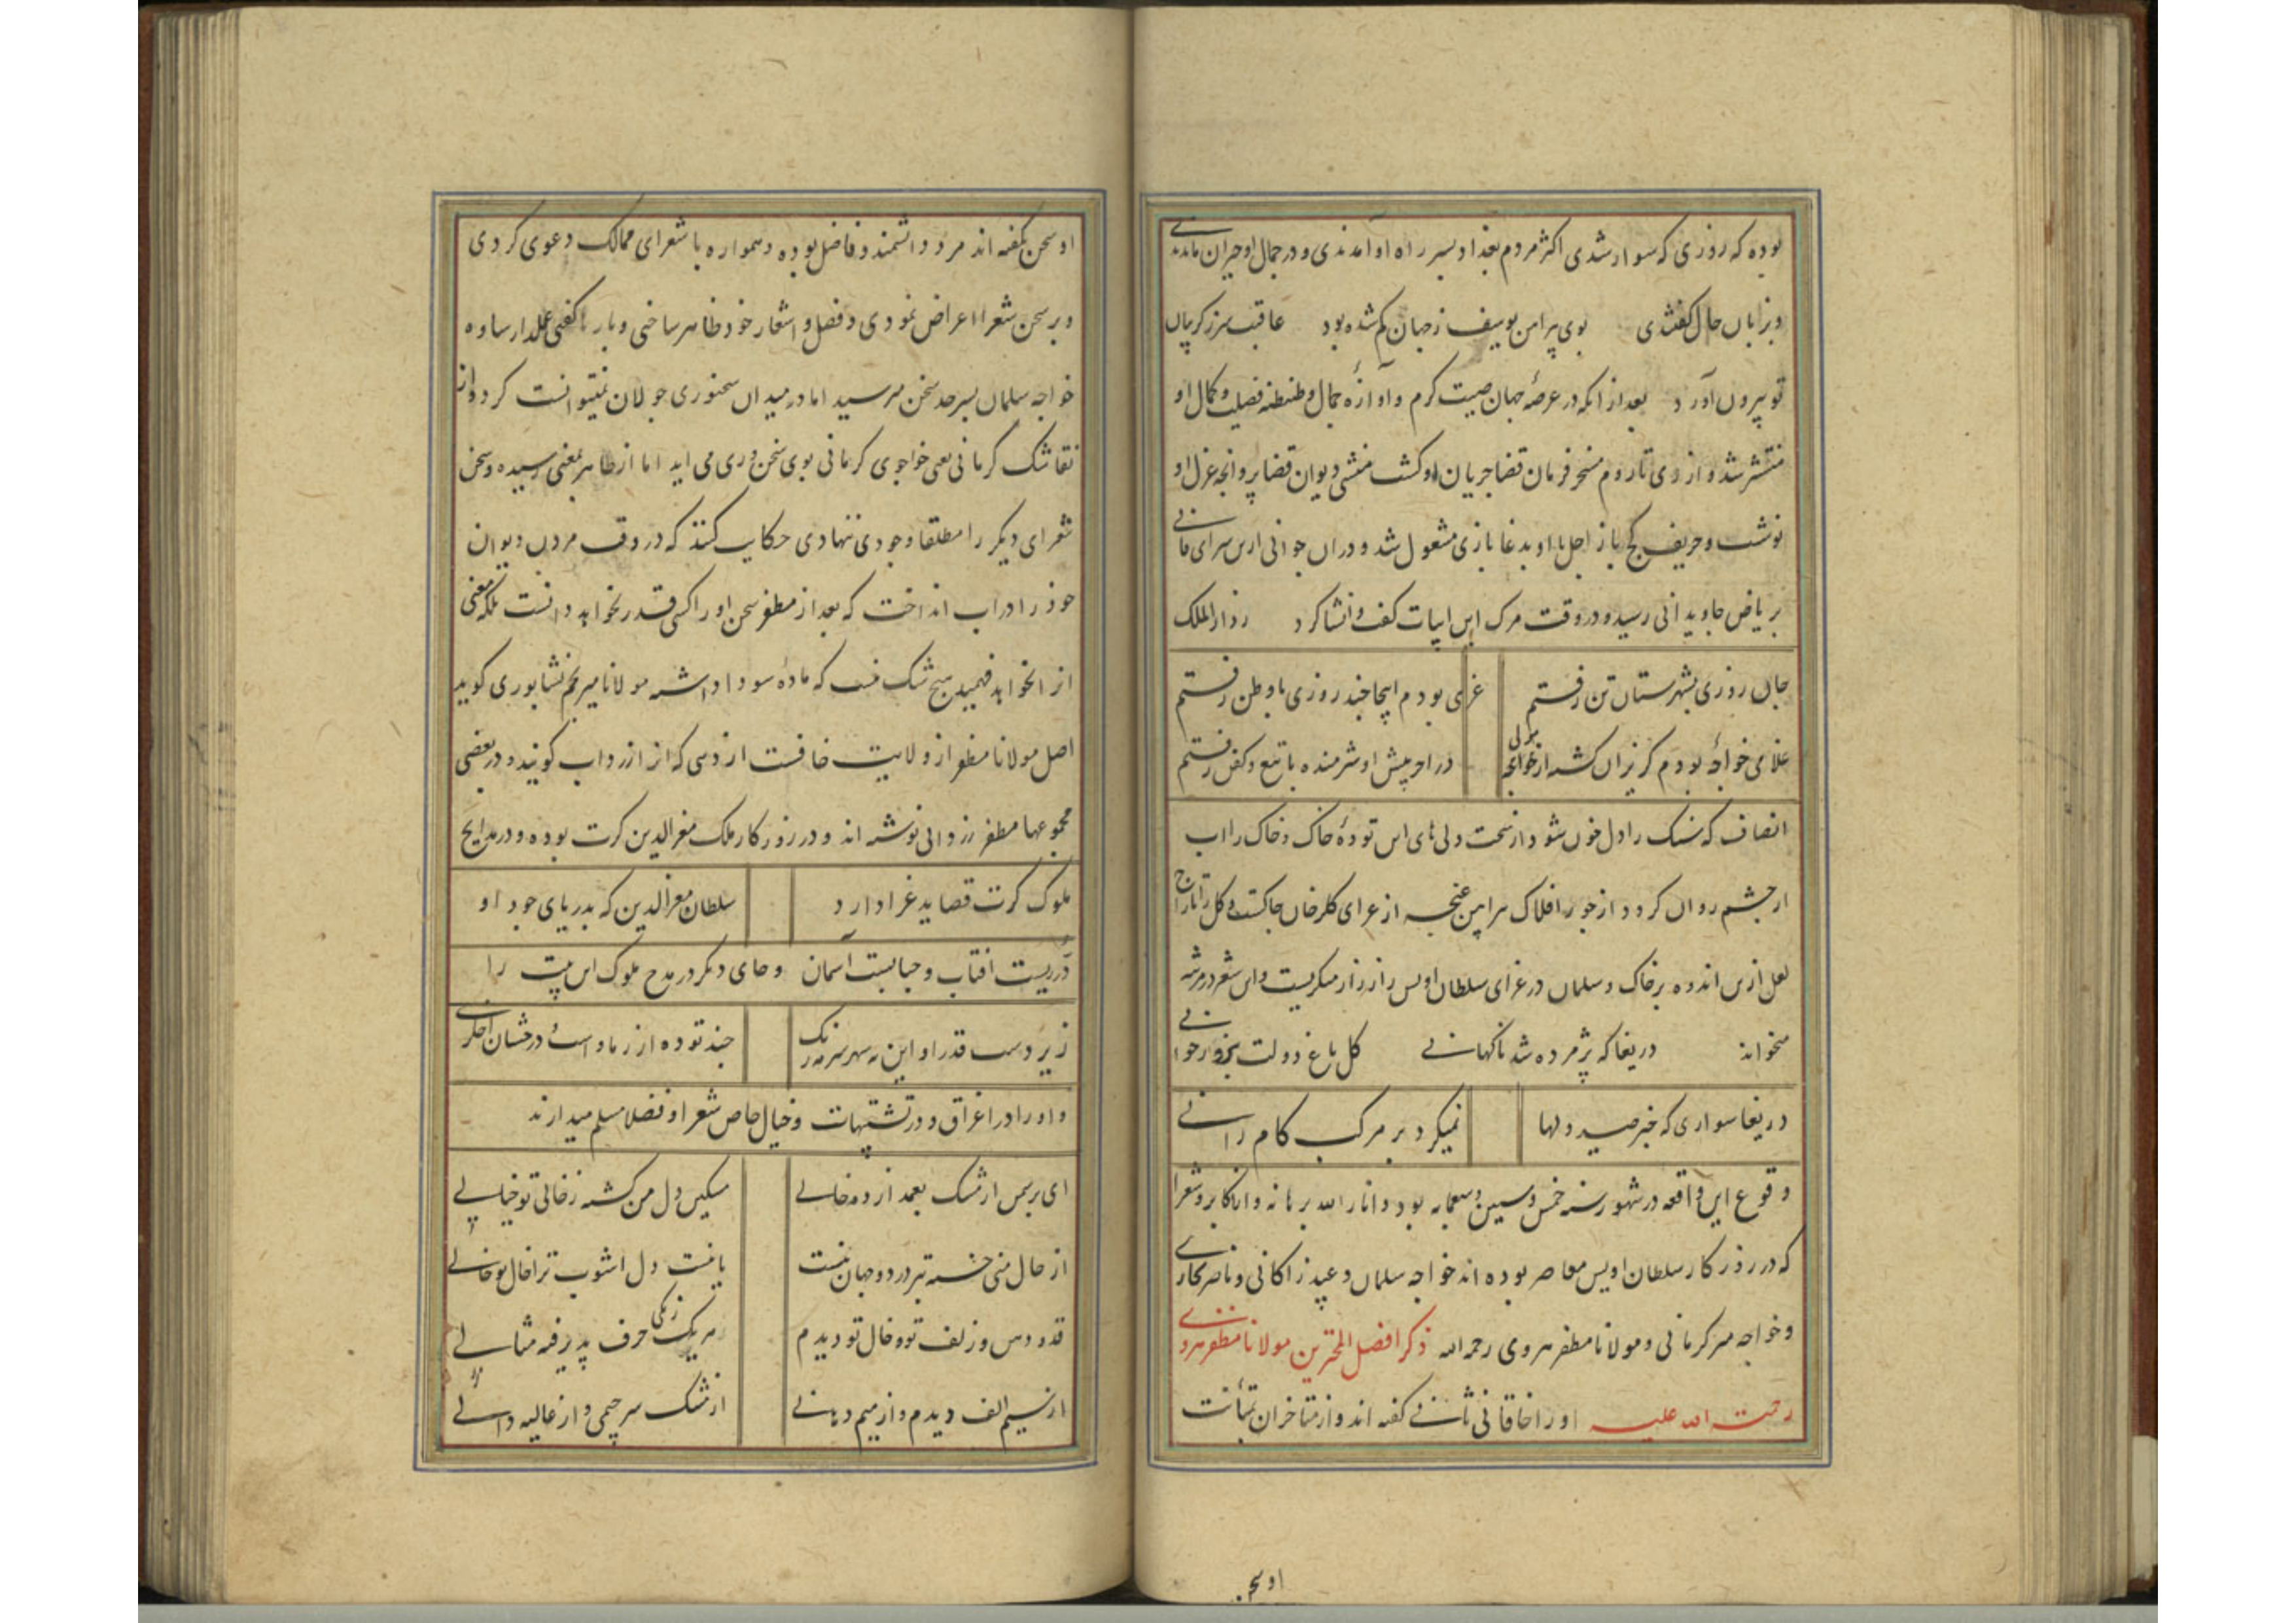 بوده که روزی که سوار شدی اکثر مردم بغداد بسر راه او آمدندی و در جمال او حیران ماندندی
و بزبان حال گفتندی بوی پیراهن یوسف ز جهان گم شده بود عاقبت سر ز گریبان
تو بیرون آورد بعد از آنکه در عرصهٔ جهان صیت کرم و آوازهٔ جمال و طنطنه فضیلت و کمال او
منتشر شد و از ری تا روم مسخر فرمان قضا جریان او گشت منشی دیوان قضا پروانچه عزل او
نوشت و حریف کج باز اجل با او بدغا بازی مشغول شد و در آن جوانی ازین سرای فانی
بریاض جاودانی رسید و در وقت مرگ این ابیات گفت و انشا کرد ز دار الملک
جان روزی بشهرستان تن رفتم غریبی بودم اینجا چند روزی با وطن رفتم
غلامی خواجهٔ بودم گریزان گشته از خواجه در آخر پیش او شرمنده با تیغ و کفن رفتم
انصاف که سنگ را دل خون شود از سخت دلی‌های این تودهٔ خاک و خاک را آب
از چشم روان گردد از جور افلاک پیراهن غنچه از عزای گلرخان چاکست و گل را تاراج
لعل ازین اندوه بر خاک و سلمان در عزای سلطان اویس زار زار میگریست و این شعر در مرثیه
میخواند دریغا که پژمرده شد ناگهانی گل باغ دولت بروز جوانی
دریغا سواری که جز صید دلها نمیکرد بر مرکب کامرانی
وقوع این واقعه در شهور سنه خمس و سبعین و سبعمایه بود و انار الله برهانه و از اکابر و شعرا
که در روزگار سلطان اویس معاصر بوده‌اند خواجه سلمان و عبید زاکانی و ناصر بخاری
و خواجه میر کرمانی و مولانا مظفر هروی رحمه الله ذکر افضل المتاخرین مولانا مظفر هروی
رحمت الله علیه او را خاقانی ثانی گفته اند و از متاخران بمتانت
او سخن
او سخن نگفته اند مرد دانشمند و فاضل بوده و همواره با شعرای ممالک دعوی کردی
و بر سخن شعرا اعراض نمودی و فضل و اشعار خود ظاهر ساختی و بارها گفتی علمدار ساوه
خواجه سلمان بسرحد سخن میرسید اما در میدان سخنوری جولان نمیتوانست کرد و از
نقاشک کرمانی یعنی خواجوی کرمانی بوی سخن وری می آید اما از ظاهر بمعنی نرسیده و سخن
شعرای دیگر را مطلقا وجودی ننهادی حکایت کنند که در وقت مردن دیوان
خود را در آب انداخت که بعد از مظفر سخن او را کسی قدر نخواهد دانست بلکه معنی
آنرا نخواهد فهمید هیچ شک نیست که مادهٔ سودا داشته مولانا میر نجم نشابوری گوید
اصل مولانا مظفر از ولایت خافست از دهی که آنرا ازرواب گویند و در بعضی
مجموعها مظفر رزوابی نوشته اند و در روزگار ملک معز الدین کرت بوده و در مدایح
ملوک کرت قصاید غرا دارد سلطان معز الدین که بدریای جود او
دریست آفتاب و حبابیست آسمان و جای دیگر در مدح ملوک این بیت را
زیر دست قدر او این نه سپهر سرمه رنگ چند توده از رماد است درخشان اخگری
و او را در اغراق و در تشبیهات و خیال خاص شعرا و فضلا مسلم میدارند
ای بر سمن از مشک بعمد از ده خالی مسکین دل من گشته ز خالی تو خیالی
از حال منی خسته تر در دو جهان نیست یا نیست دل آشوب تر از خال تو خالی
قد و دهن و زلف تو و خال تو دیدم هر یک زیکی حرف پذیرفته مثالی
از سیم الف دیدم و از بسد میم از مشک سر جیمی و از غالیه دالی